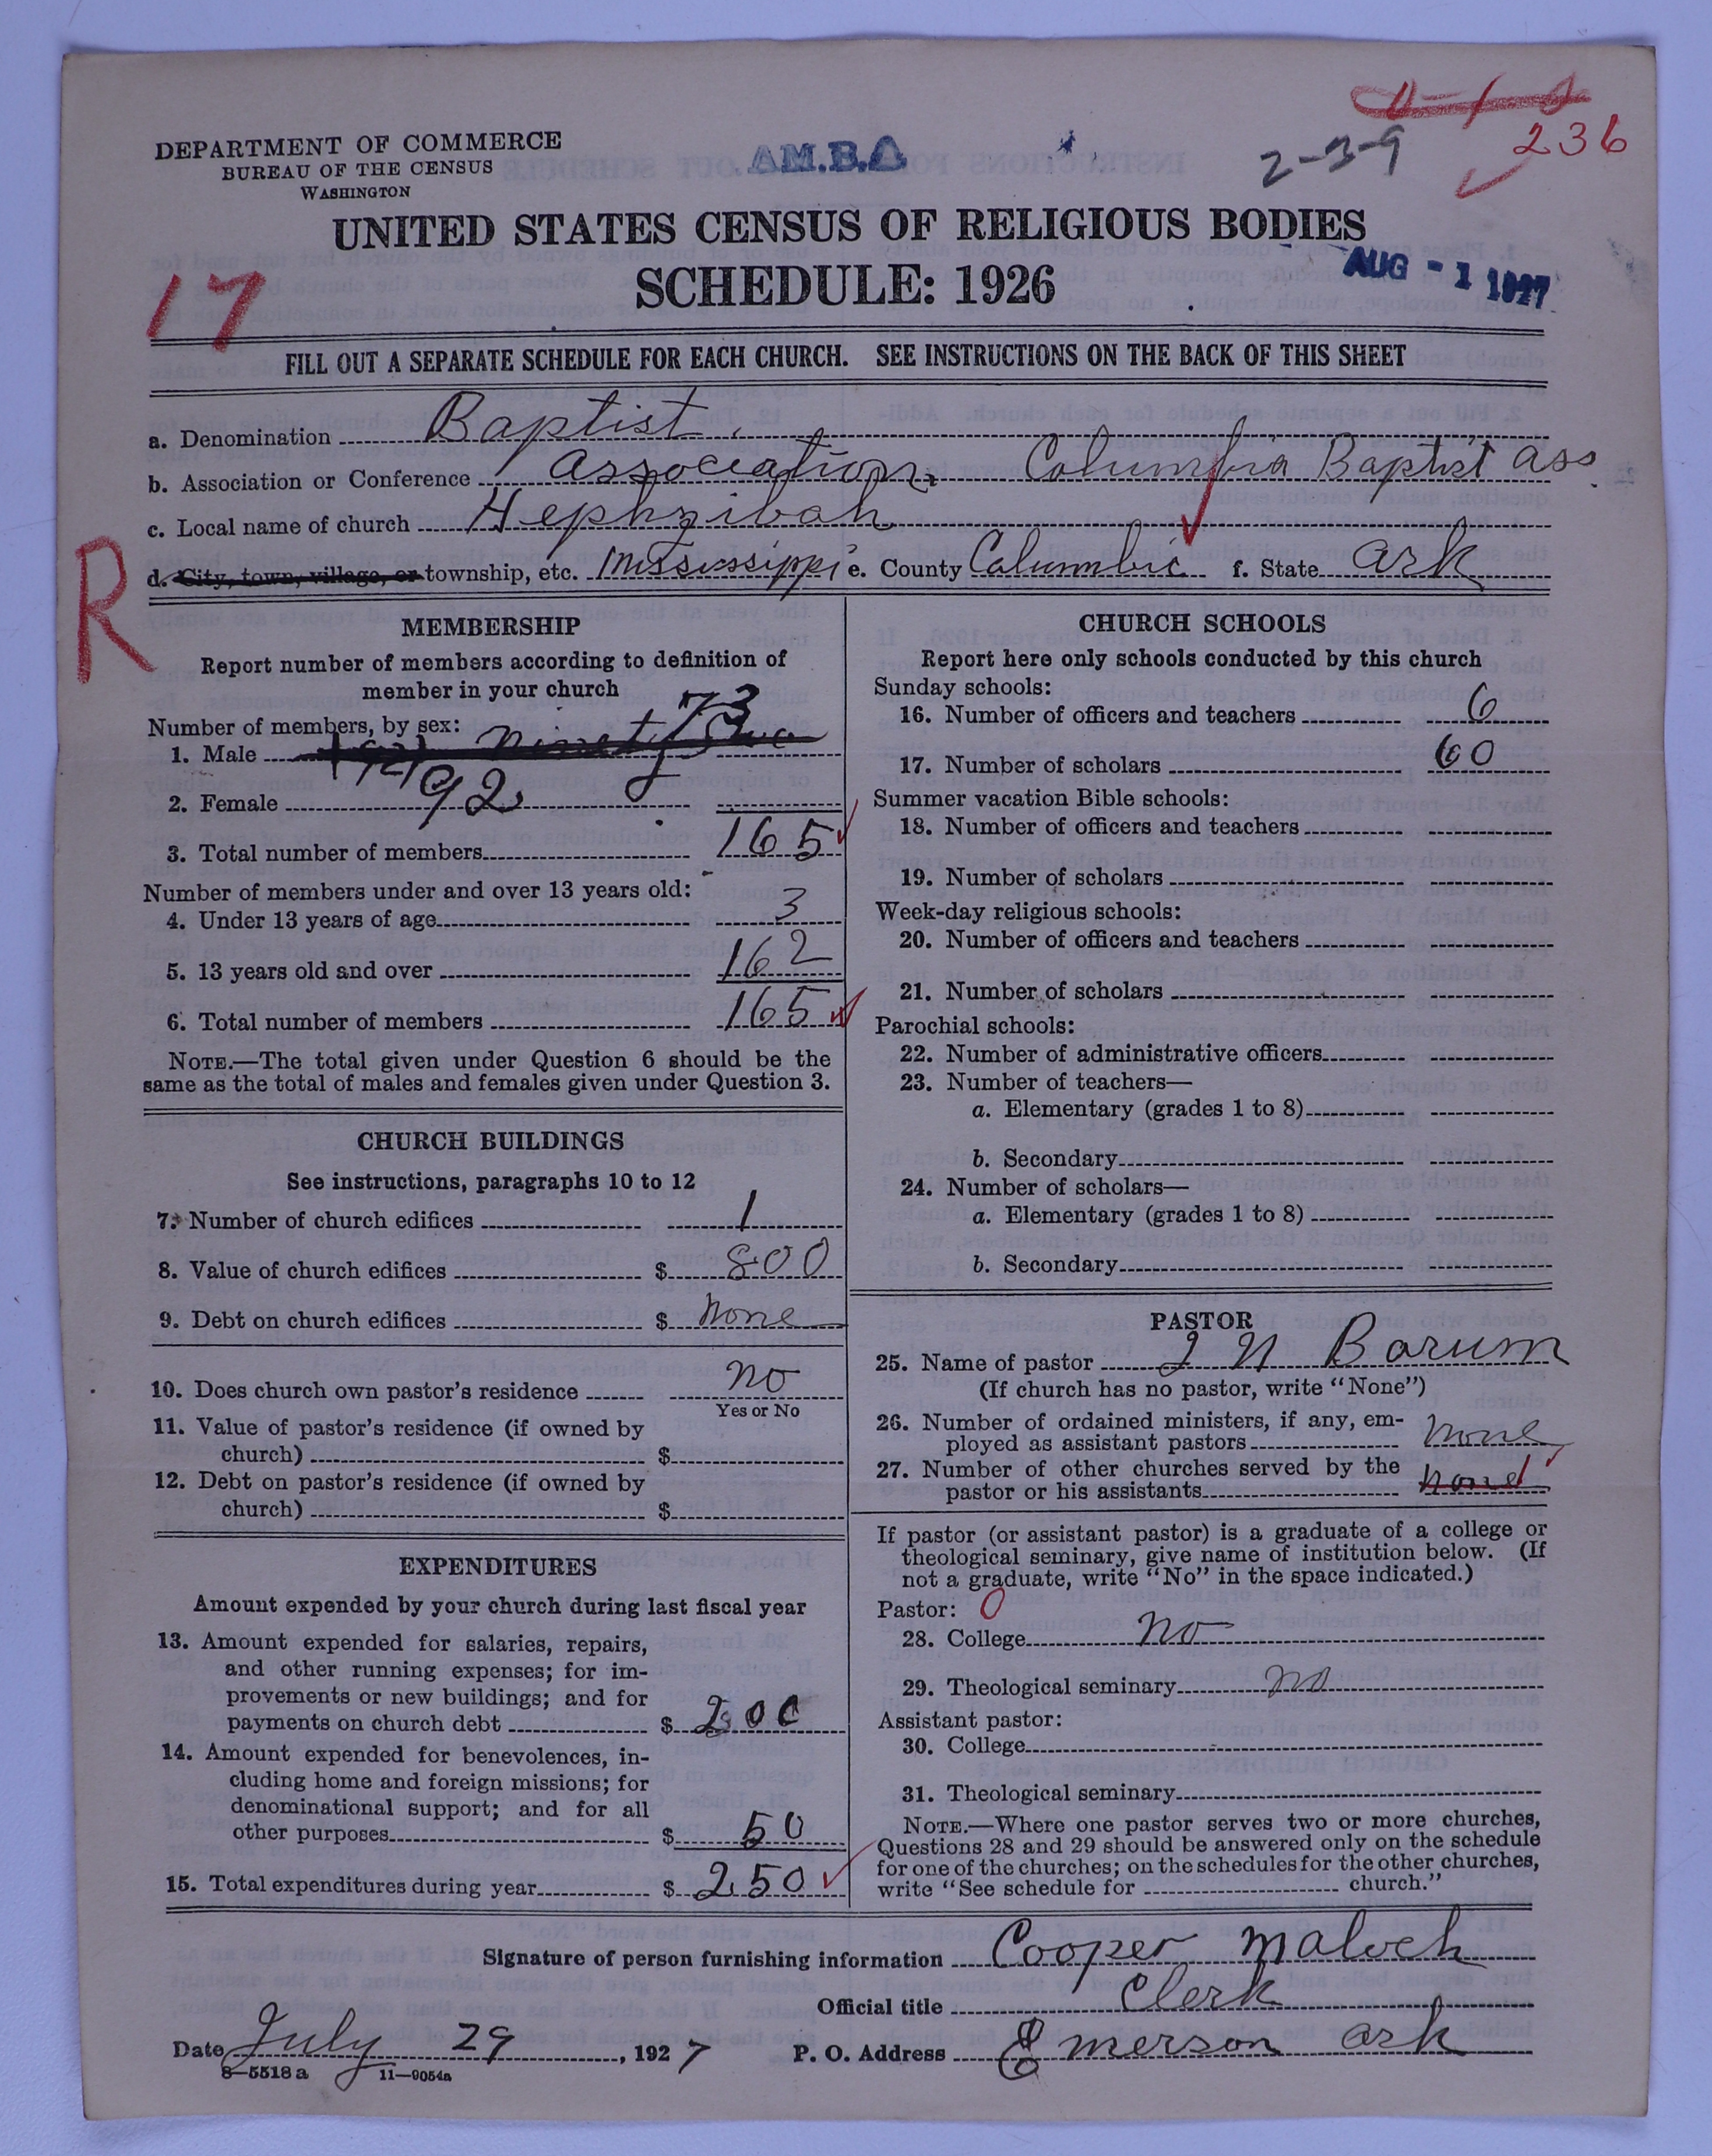 DEPARTMENT OF COMMERCE
BUREAU OF THE CENSUS
WASHINGTON
AM.B.A
2-3-9
236
UNITED STATES CENSUS OF RELIGIOUS BODIES
SCHEDULE: 1926
AUG - 1 1927
17
FILL OUT A SEPARATE SCHEDULE FOR EACH CHURCH. SEE INSTRUCTIONS ON THE BACK OF THIS SHEET
a. Denomination Baptist
b. Association or Conference Association, Columbia Baptist Ass
c. Local name of church Hephzibah
d. City, town, village, or township, etc. Mississippi e. County Columbia f. State Ark
R
MEMBERSHIP
Report number of members according to definition of
member in your church
Number of members, by sex: 73
1. Male ninety
2. Female 92
3. Total number of members 165
Number of members under and over 13 years old:
4. Under 13 years of age 3
5. 13 years old and over 162
6. Total number of members 165
NOTE.—The total given under Question 6 should be the
same as the total of males and females given under Question 3.
CHURCH BUILDINGS
See instructions, paragraphs 10 to 12
7. Number of church edifices 1
8. Value of church edifices $ 800
9. Debt on church edifices $ None
10. Does church own pastor's residence No
Yes or No
11. Value of pastor's residence (if owned by
church) $
12. Debt on pastor's residence (if owned by
church) $
EXPENDITURES
Amount expended by your church during last fiscal year
13. Amount expended for salaries, repairs,
and other running expenses; for im-
provements or new buildings; and for
payments on church debt $ 200
14. Amount expended for benevolences, in-
cluding home and foreign missions; for
denominational support; and for all
other purposes $ 50
15. Total expenditures during year $ 250
CHURCH SCHOOLS
Report here only schools conducted by this church
Sunday schools:
16. Number of officers and teachers 6
17. Number of scholars 60
Summer vacation Bible schools:
18. Number of officers and teachers
19. Number of scholars
Week-day religious schools:
20. Number of officers and teachers
21. Number of scholars
Parochial schools:
22. Number of administrative officers
23. Number of teachers—
a. Elementary (grades 1 to 8)
b. Secondary
24. Number of scholars—
a. Elementary (grades 1 to 8)
b. Secondary
PASTOR
25. Name of pastor J N Barum
(If church has no pastor, write "None")
26. Number of ordained ministers, if any, em-
ployed as assistant pastors None
27. Number of other churches served by the
pastor or his assistants none
If pastor (or assistant pastor) is a graduate of a college or
theological seminary, give name of institution below. (If
not a graduate, write "No" in the space indicated.)
Pastor: 0
28. College No
29. Theological seminary No
Assistant pastor:
30. College
31. Theological seminary
NOTE.—Where one pastor serves two or more churches,
Questions 28 and 29 should be answered only on the schedule
for one of the churches; on the schedules for the other churches,
write "See schedule for church."
Signature of person furnishing information Cooper Maloch
Official title Clerk
Date July 29, 1927 P. O. Address Emerson Ark
8-5518a 11-9054a